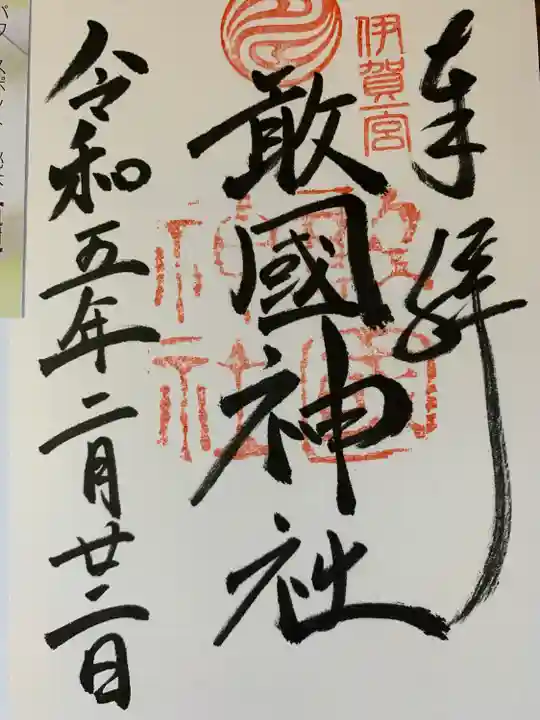 奉拜
伊賀一宮
敢國神社
令和五年二月廿二日